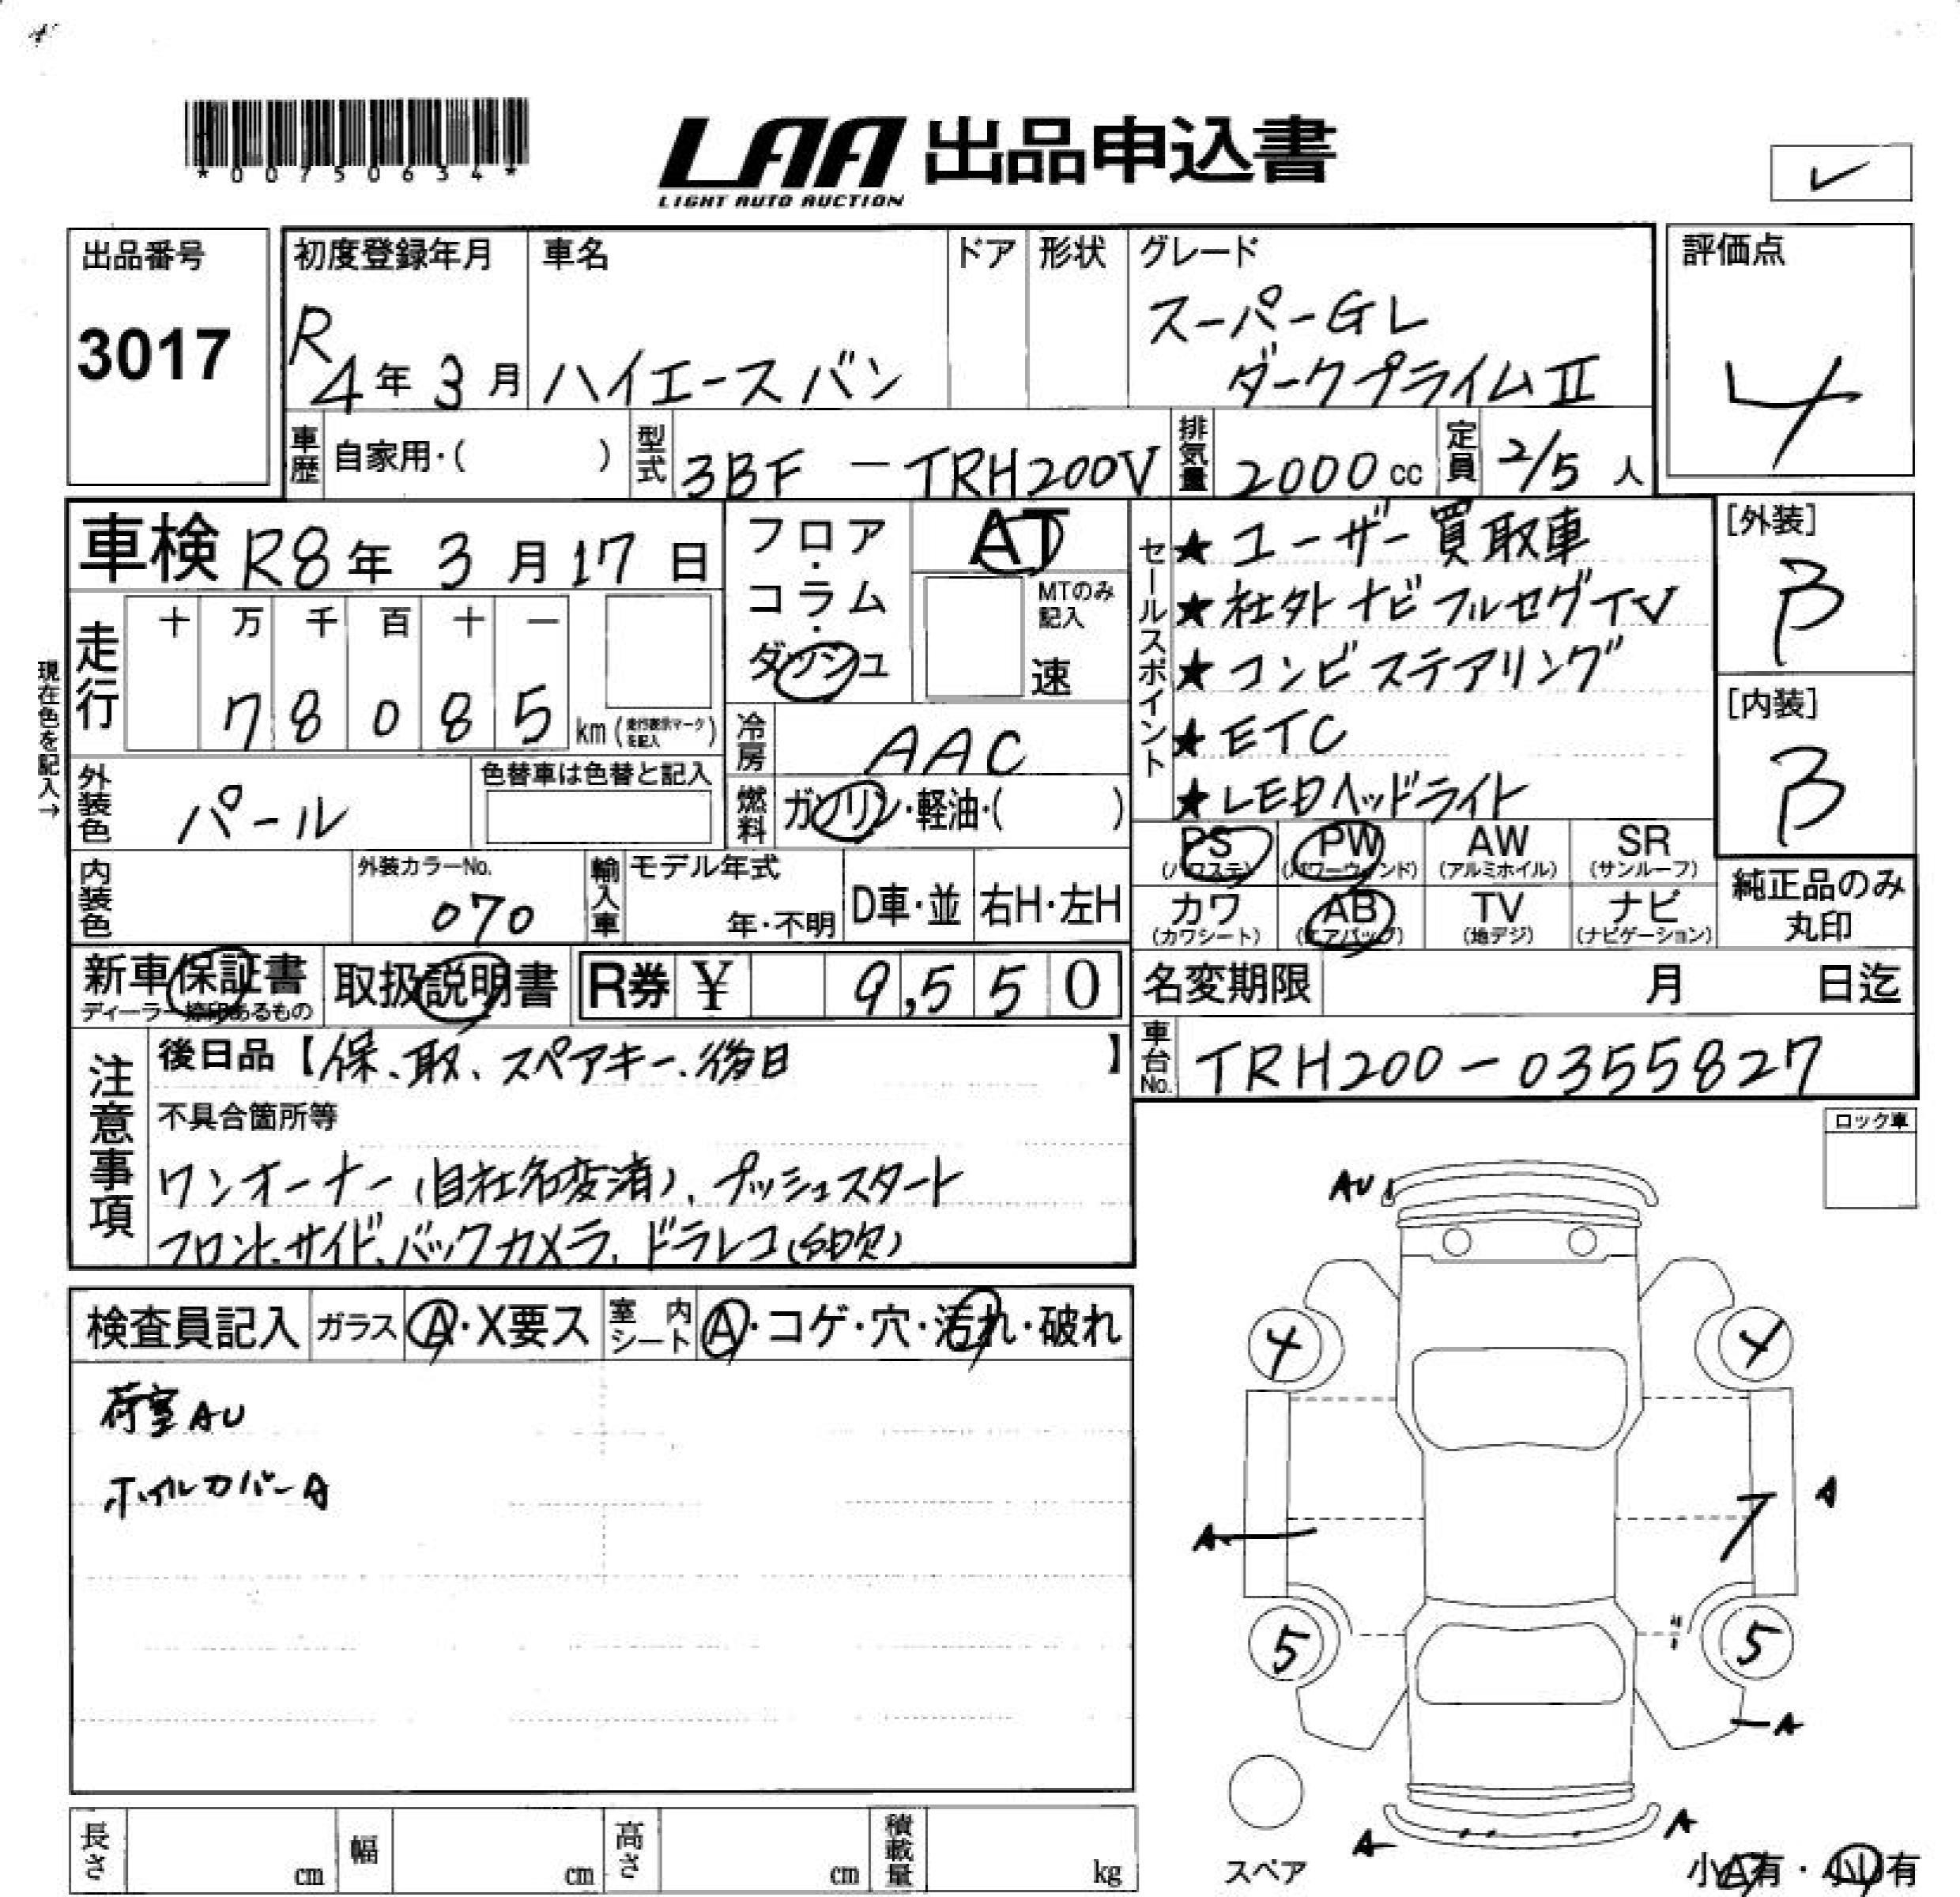 *00750634*
LAA 出品申込書
LIGHT AUTO AUCTION
出品番号
3017
初度登録年月
R4年3月
車名
ハイエースバン
ドア
形状
グレード
スーパーGL
ダークプライムⅡ
評価点
4
車歴 自家用・( )
型式 3BF - TRH200V
排気量 2000cc
定員 2/5人
車検 R8年3月17日
フロア・コラム・ダッシュ
AT
MTのみ記入
速
セールスポイント
★ユーザー買取車
★社外ナビフルセグTV
★コンビステアリング
★ETC
★LEDヘッドライト
[外装]
B
[内装]
B
現在色を記入→
走行
十 万 千 百 十 一
78085 km(走行表示マークを記入)
冷房 AAC
外装色 パール
色替車は色替と記入
燃料 ガソリン・軽油・( )
PS(パワステ) PW(パワーウィンド) AW(アルミホイル) SR(サンルーフ)
カワ(カワシート) AB(エアバッグ) TV(地デジ) ナビ(ナビゲーション)
純正品のみ丸印
内装色
外装カラーNo.
070
輸入車
モデル年式
年・不明
D車・並
右H・左H
新車保証書
ディーラー捺印あるもの
取扱説明書
R券 ¥ 9,550
名変期限 月 日迄
車台No. TRH200-0355827
注意事項
後日品【保、取、スペアキー、後日】
不具合箇所等
ワンオーナー(自社名変済)、プッシュスタート
フロント、サイド、バックカメラ、ドラレコ(SD欠)
ロック車
AU
検査員記入
ガラス A・X要ス
室内シート A・コゲ・穴・汚れ・破れ
荷室AU
ホイルカバーA
4 4
A
A
5 5
A
A A
スペア
小A有・小U有
長さ cm
幅 cm
高さ cm
積載量 kg